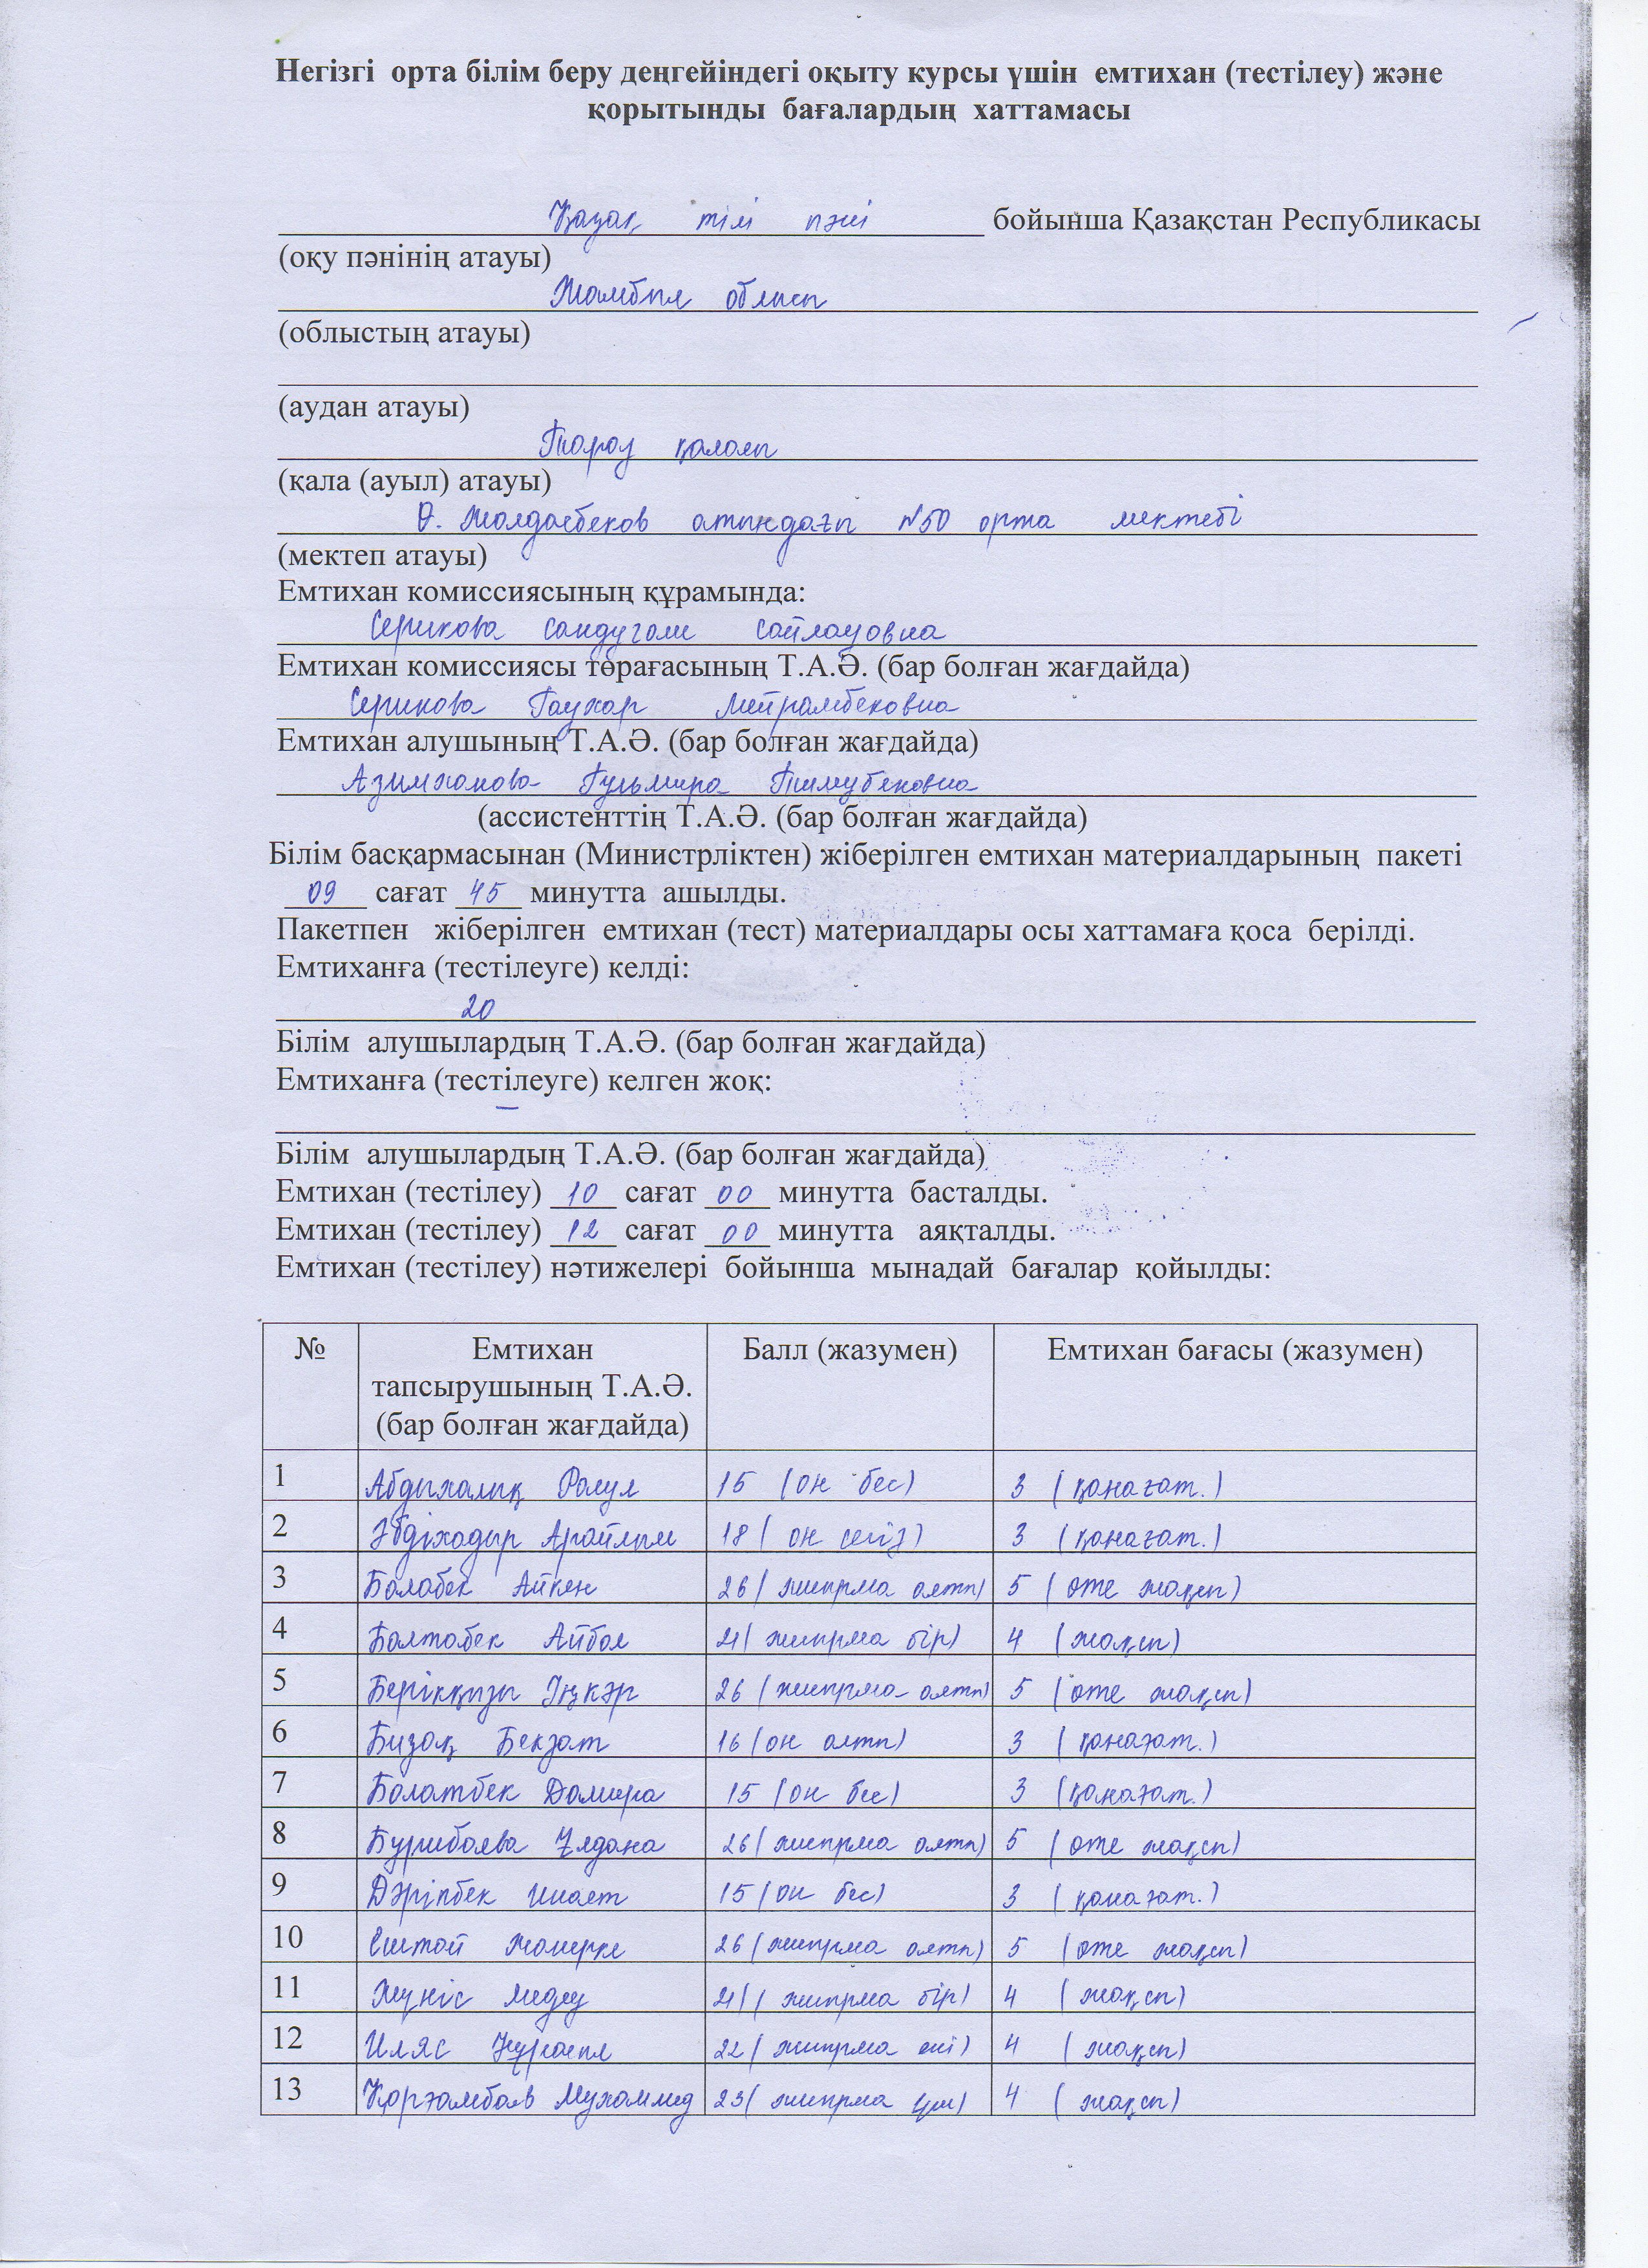 Негізгі орта білім беру деңгейіндегі оқыту курсы үшін емтихан (тестілеу) және
қорытынды бағалардың хаттамасы
Қазақ тілі пәні бойынша Қазақстан Республикасы
(оқу пәнінің атауы)
Жамбыл облысы
(облыстың атауы)
(аудан атауы)
Тараз қаласы
(қала (ауыл) атауы)
Ө. Жолдасбеков атындағы №50 орта мектебі
(мектеп атауы)
Емтихан комиссиясының құрамында:
Серикова Сандугаш Сайлауовна
Емтихан комиссиясы төрағасының Т.А.Ә. (бар болған жағдайда)
Серикова Гаухар Мейрамбековна
Емтихан алушының Т.А.Ә. (бар болған жағдайда)
Азимханова Гульмира
(ассистенттің Т.А.Ә. (бар болған жағдайда)
Білім басқармасынан (Министрліктен) жіберілген емтихан материалдарының пакеті
09 сағат 45 минутта ашылды.
Пакетпен жіберілген емтихан (тест) материалдары осы хаттамаға қоса берілді.
Емтиханға (тестілеуге) келді:
20
Білім алушылардың Т.А.Ә. (бар болған жағдайда)
Емтиханға (тестілеуге) келген жоқ:
–
Білім алушылардың Т.А.Ә. (бар болған жағдайда)
Емтихан (тестілеу) 10 сағат 00 минутта басталды.
Емтихан (тестілеу) 12 сағат 00 минутта аяқталды.
Емтихан (тестілеу) нәтижелері бойынша мынадай бағалар қойылды:
№ Емтихан тапсырушының Т.А.Ә. (бар болған жағдайда) Балл (жазумен) Емтихан бағасы (жазумен)
1 Абдыхалық Расул 15 (он бес) 3 (қанағат.)
2 Әбдіхадыр Арайлым 18 (он сегіз) 3 (қанағат.)
3 Балабек Айкен 26 (жиырма алты) 5 (өте жақсы)
4 Балтабек Айбол 21 (жиырма бір) 4 (жақсы)
5 Берікқызы Іңкәр 26 (жиырма алты) 5 (өте жақсы)
6 Бизақ Бекзат 16 (он алты) 3 (қанағат.)
7 Болатбек Дамира 15 (он бес) 3 (қанағат.)
8 Бурибаева Ұлдана 26 (жиырма алты) 5 (өте жақсы)
9 Дәріпбек Инаят 15 (он бес) 3 (қанағат.)
10 Ештай Жанерке 26 (жиырма алты) 5 (өте жақсы)
11 Жүніс Медеу 21 (жиырма бір) 4 (жақсы)
12 Ильяс Нұрасыл 22 (жиырма екі) 4 (жақсы)
13 Қорғамбаев Мухаммед 23 (жиырма үш) 4 (жақсы)